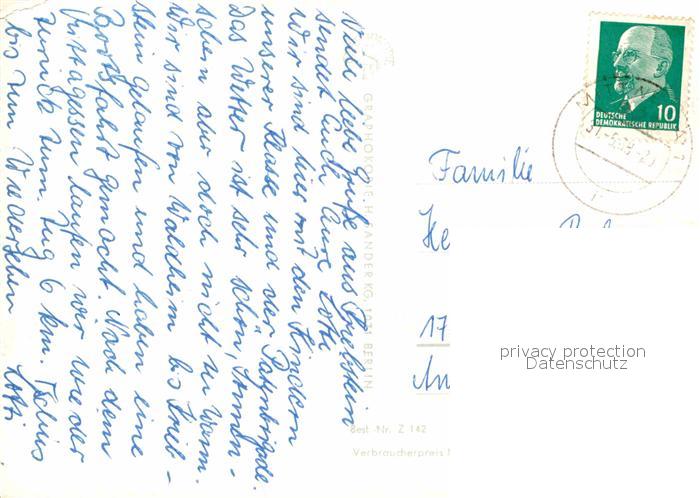 Viele liebe Grüße aus Kriebstein
sendet Euch Eure Lotti
Wir sind hier mit den Kindern
unserer Klasse und der Patenbrigade.
Das Wetter ist sehr schön, Sonnen-
schein aber doch nicht zu warm.
Wir sind von Waldheim bis Krieb-
stein gelaufen und haben eine
Bootsfahrt gemacht. Nach dem
Mittagessen laufen wir wieder
zurück zum Zug 6 km. Tschüs
bis zum Wiedersehen Lotti
GRAPHOKOPIE H. SANDER KG, 1034 BERLIN
Best.-Nr. Z 142
Verbraucherpreis
10
DEUTSCHE
DEMOKRATISCHE REPUBLIK
Familie
He
17
An
privacy protection
Datenschutz